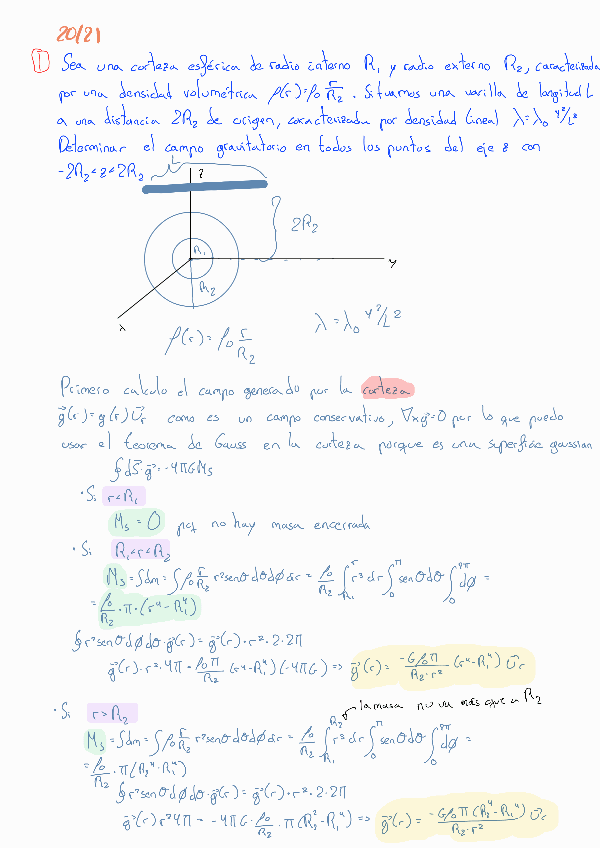 20/21
① Sea una corteza esférica de radio interno R₁ y radio externo R₂, caracterizada
por una densidad volumétrica ρ(r)=ρ₀ r/R₂. Situamos una varilla de longitud L
a una distancia 2R₂ de origen, caracterizada por densidad lineal λ=λ₀ y²/L²
Determinar el campo gravitatorio en todos los puntos del eje z con
-2R₂<z<2R₂
L
z
2R₂
R₁
R₂
y
x
ρ(r)=ρ₀ r/R₂
λ=λ₀ y²/L²
Primero calculo el campo generado por la corteza
g⃗(r)=g(r) U⃗r como es un campo conservativo, ∇×g⃗=0 por lo que puedo
usar el teorema de Gauss en la corteza porque es una superficie gaussian
∮dS⃗·g⃗=-4πGMs
· Si r<R₁
Ms = 0 pq no hay masa encerrada
· Si R₁<r<R₂
Ms=∫dm=∫ρ₀ r/R₂ r²senθdθdφdr = ρ₀/R₂ ∫_R₁^r r³dr ∫_0^π senθdθ ∫_0^2π dφ =
= ρ₀/R₂ · π · (r⁴-R₁⁴)
∮r²senθdφdθ·g⃗(r)=g⃗(r)·r²·2·2π
g⃗(r)·r²·4π = ρ₀π/R₂ (r⁴-R₁⁴)(-4πG) => g⃗(r)= -Gρ₀π/R₂·r² (r⁴-R₁⁴) U⃗r
la masa no va más que a R₂
· Si r>R₂
Ms=∫dm=∫ρ₀ r/R₂ r²senθdθdφdr = ρ₀/R₂ ∫_R₁^R₂ r³dr ∫_0^π senθdθ ∫_0^2π dφ =
= ρ₀/R₂ · π(R₂⁴-R₁⁴)
∮r²senθdφdθ·g⃗(r)=g⃗(r)·r²·2·2π
g⃗(r)r²4π = -4πG·ρ₀/R₂·π(R₂⁴-R₁⁴) => g⃗(r)= -Gρ₀π(R₂⁴-R₁⁴)/R₂·r² U⃗r